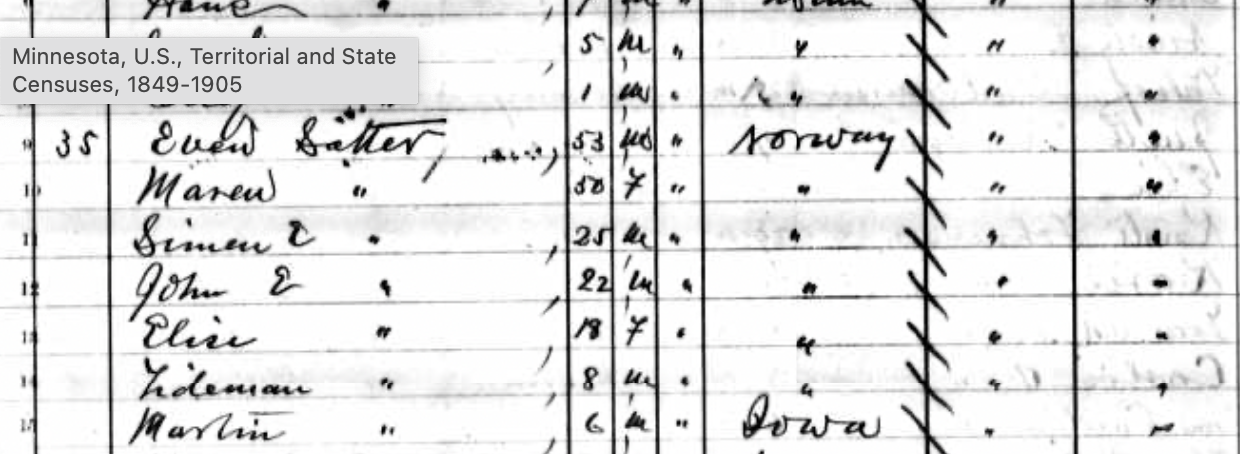 Hans "
Minnesota, U.S., Territorial and State
Censuses, 1849-1905
5 m " " " "
1 m " " " "
9 35 Even Satter, 53 m " Norway " "
10 Maren " 50 F " " " "
11 Simen E " 25 m " " " "
12 John E " 22 m " " " "
13 Elise " 18 F " " " "
14 Tideman " 8 m " " " "
15 Martin " 6 m " Iowa " "